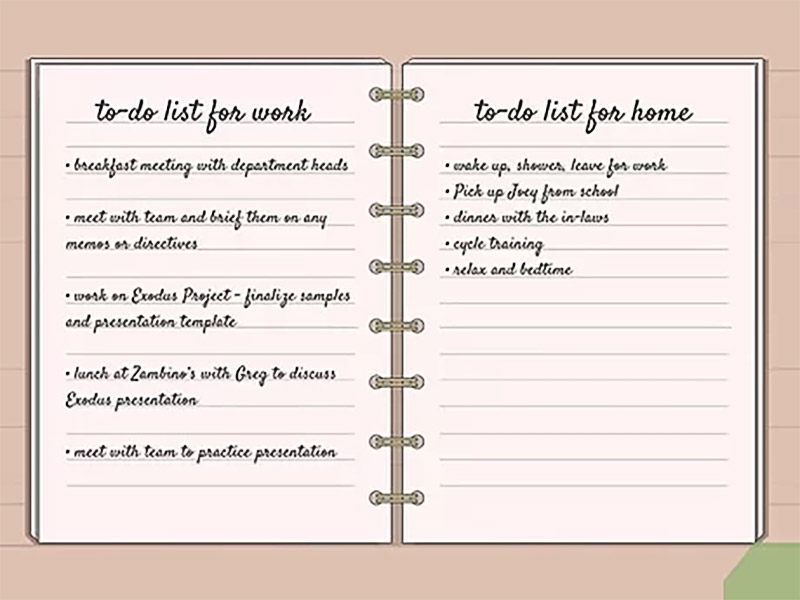 to-do list for work
• breakfast meeting with department heads
• meet with team and brief them on any
memos or directives
• work on Exodus Project - finalize samples
and presentation template
• lunch at Zambino's with Greg to discuss
Exodus presentation
• meet with team to practice presentation
to-do list for home
• wake up, shower, leave for work
• Pick up Joey from school
• dinner with the in-laws
• cycle training
• relax and bedtime